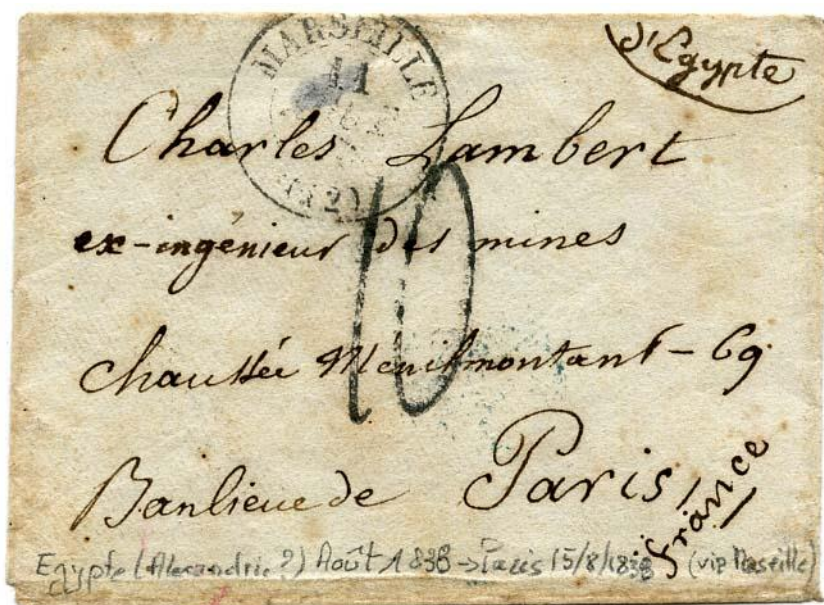 d'Egypte
MARSEILLE
11
(12)
Charles Lambert
ex-ingénieur des mines
10
chaussée Ménilmontant - 69
Banlieue de Paris
France
Egypte (Alexandrie?) Août 1838 → Paris 15/8/1838 (via Marseille)